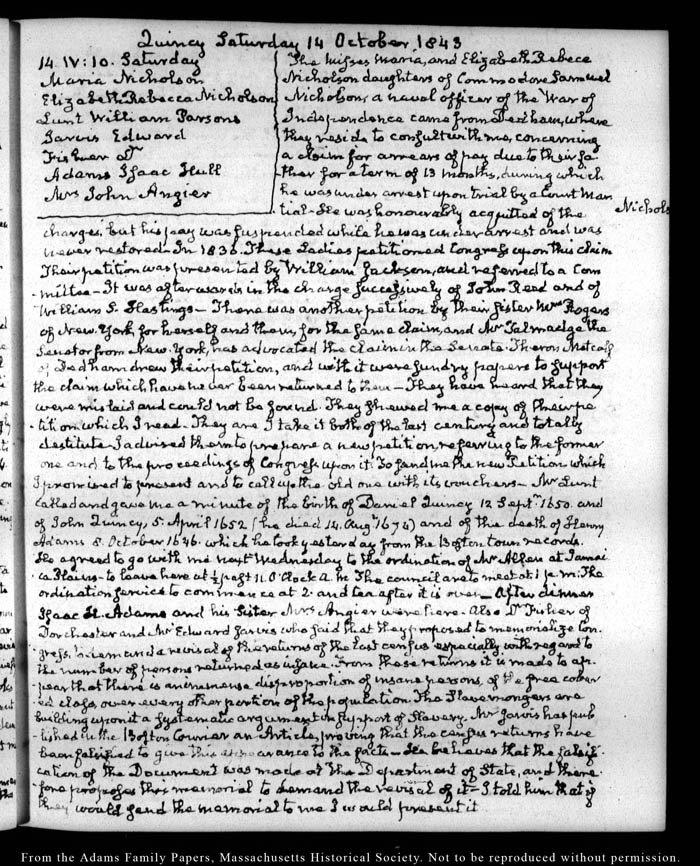 Quincy Saturday 14 October 1843
14. IV:10. Saturday
Maria Nicholson
Elizabeth Rebecca Nicholson
Lunt William Parsons
Jarvis Edward
Fisher Dr
Adams Isaac Hull
Mrs John Angier
The Misses Maria, and Elizabeth Rebecc
Nicholson daughters of Commodore Samuel
Nicholson, a naval officer of the War of
Independence came from Dedham, where
they reside to consult with me, concerning
a claim for arrears of pay due to their fa-
ther for a term of 13 months, during which
he was under arrest upon trial by a Court Mar
tial. He was honourably acquitted of the
Nichols
charges, but his pay was suspended while he was under arrest and was
never restored. In 1836. These Ladies petitioned Congress upon this claim
Their petition was presented by William Jackson, and referred to a Com
mittee. It was afterwards in the charge successively of John Reed and of
William S. Hastings. There was another petition by their sister Mrs Rogers
of New-York, for herself and them, for the same claim, and Mr Talmadge the
Senator from New-York, has advocated the claim in the Senate. Theron Metcalf
of Dedham drew their petition, and with it were sundry papers to support
the claim which have never been returned to them. They have heard that they
were mislaid and could not be found. They shewed me a copy of their pe-
tition which I read. They are I take it both of the last century and totally
destitute. I advised them to prepare a new petition, referring to the former
one and to the proceedings of Congress upon it. To send me the new Petition which
I promised to present and to call up the old one with its vouchers. Mr Lunt
called and gave me a minute of the birth of Daniel Quincy 12 Septr 1650. and
of John Quincy, 5. April 1652 (he died 14. Augt 1674) and of the death of Henry
Adams 8. October 1646. which he took yesterday from the Boston town records.
He agreed to go with me next Wednesday to the ordination of Mr Allen at Jamai
ca Plains. to leave here at ½ past 11. O'Clock A. M. The council are to meet at 1 p.m. The
ordination service to commence at 2. and tea after it is over. After dinner
Isaac H. Adams and his Sister Mrs Angier were here. Also Dr Fisher of
Dorchester and Mr Edward Jarvis who said that they proposed to memorialize Con-
gress, to demand a revisal of the returns of the last census especially with regard to
the number of persons returned as insane. From those returns it is made to ap-
pear that there is an immense disproportion of insane persons, of the free colour
ed class, over every other portion of the population. The Slavemongers are
building upon it a systematic argument in support of Slavery. Mr Jarvis has pub
lished in the Boston Courier an Article, proving that the census returns have
been falsified to give this appearance to the facts. He believes that the falsifi
cation of the Document was made at the Department of State, and there-
fore proposes this memorial to demand the revisal of it. I told him that if
they would send the memorial to me I would present it
From the Adams Family Papers, Massachusetts Historical Society. Not to be reproduced without permission.